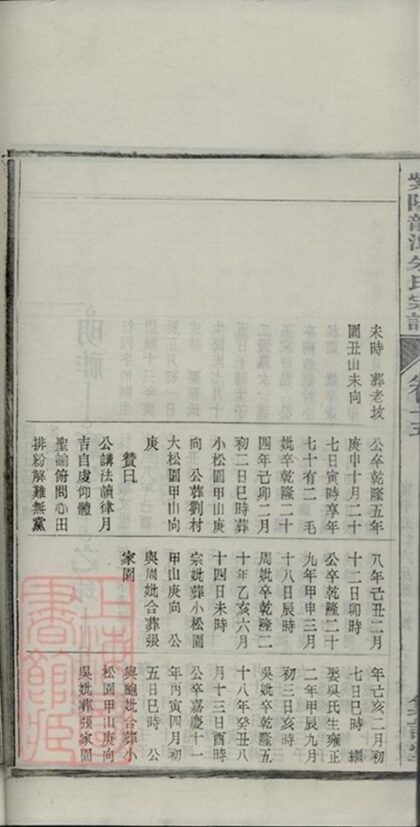 朱氏宗譜
卷十五
未時 葬老坟
園丑山未向
公卒乾隆五年
庚申十月二十
七日寅時享年
七十有二 毛
妣卒乾隆二十
四年己卯二月
初二日巳時葬
小松園甲山庚
向 公葬劉村
大松園甲山向
庚
贊曰
公講法讀律月
吉自虔仰體
聖諭俯問心田
排紛解難無黨
八年己丑二月
十二日卯時
公卒乾隆二十
九年甲申三月
十八日辰時
周妣卒乾隆二
十年乙亥六月
十四日未時
宗妣葬小松園
甲山庚向 公
與周妣合葬張
家園
年己亥二月初
七日巳時 繼
娶吳氏生雍正
二年甲辰九月
初三日亥時
吳妣卒乾隆五
十八年癸丑八
月十三日酉時
公卒嘉慶十一
年丙寅四月初
五日巳時 公
與鮑妣合葬小
松園甲山庚向
吳妣葬張家園
上海圖書館藏